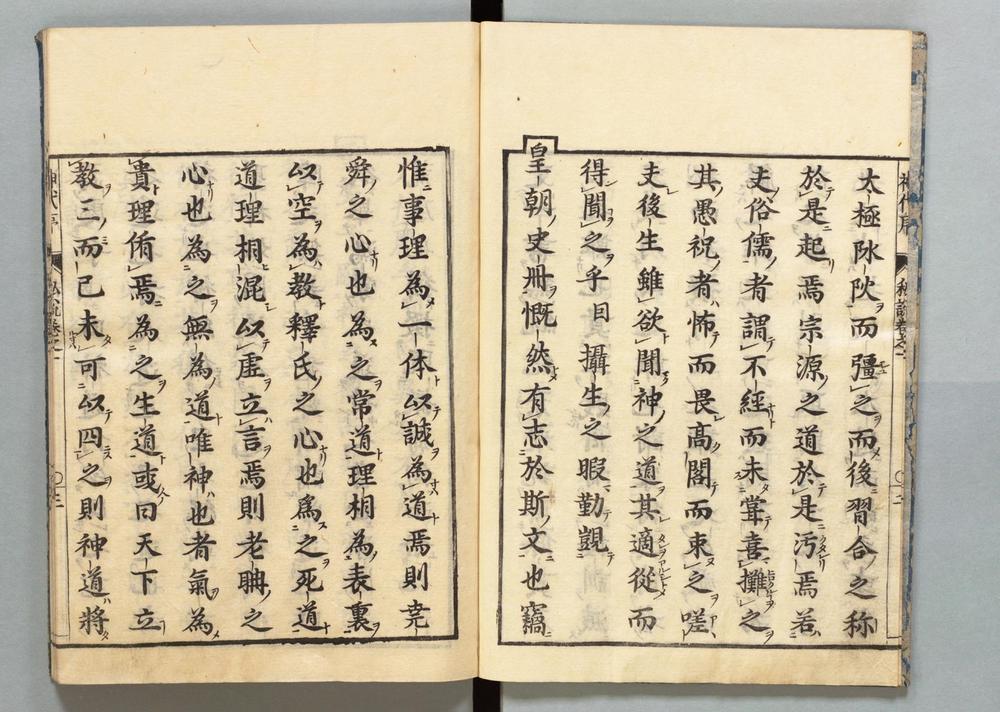 太極陥狄而彊之而後習合之称
於是起焉宗源之道於是汚焉若
夫俗儒者謂不經而未甞喜攤之
其愚祝者怖而畏高閣而束之嗟
夫後生雖欲聞神之道其適從而
得聞之乎曰攝生之暇勤觀
皇朝史冊慨然有志於斯文也竊
惟事理為一体以誠為道焉則尭
舜之心也為之常道理相為表裏
以空為教釋氏之心也爲之死道
道理相混以虚立言焉則老聃之
心也為之無為道唯神也者氣為
貴理侑焉為之生道或曰天下立
教三而已未可以四之則神道將